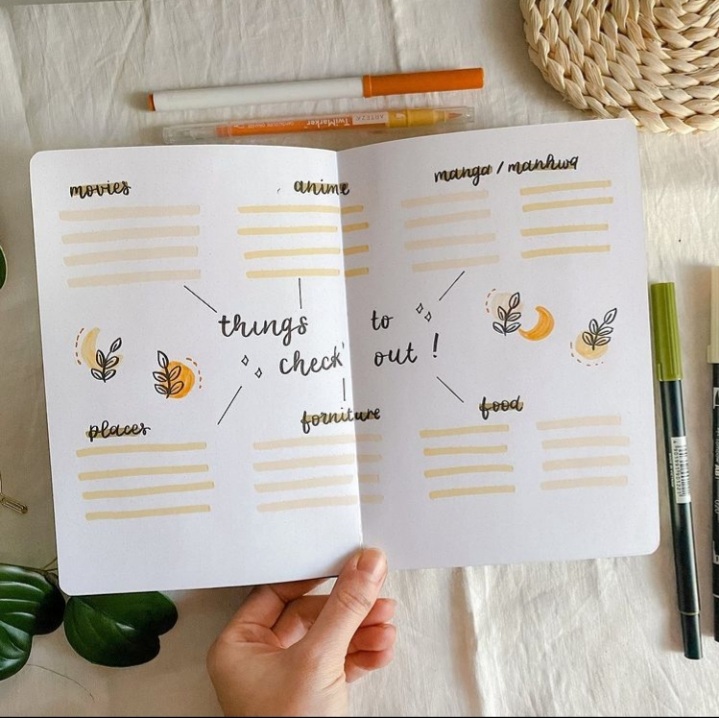 ARTEZA TwiMarker
movies
anime
manga / manhwa
things to
check out !
places
forniture
food